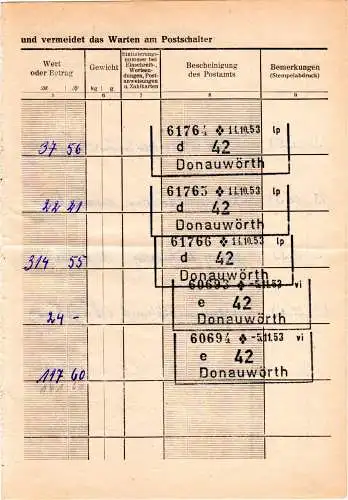 und vermeidet das Warten am Postschalter
Wert
oder Betrag
Gewicht
Einlieferungs-
nummer bei
Einschreib-,
Wertsen-
dungen, Post-
anweisungen
u. Zahlkarten
Bescheinigung
des Postamts
Bemerkungen
(Stempelabdruck)
kg g
5 6 7 8 9
61764 ✤ 11.10.53 lp
37 56 d 42
Donauwörth
61765 ✤ 11.10.53 lp
22 21 d 42
Donauwörth
61766 ✤ 11.10.53 lp
314 55 d 42
Donauwörth
60693 ✤ -5.11.53 vi
24 - e 42
Donauwörth
60694 ✤ -5.11.53 vi
e 42
117 60 Donauwörth